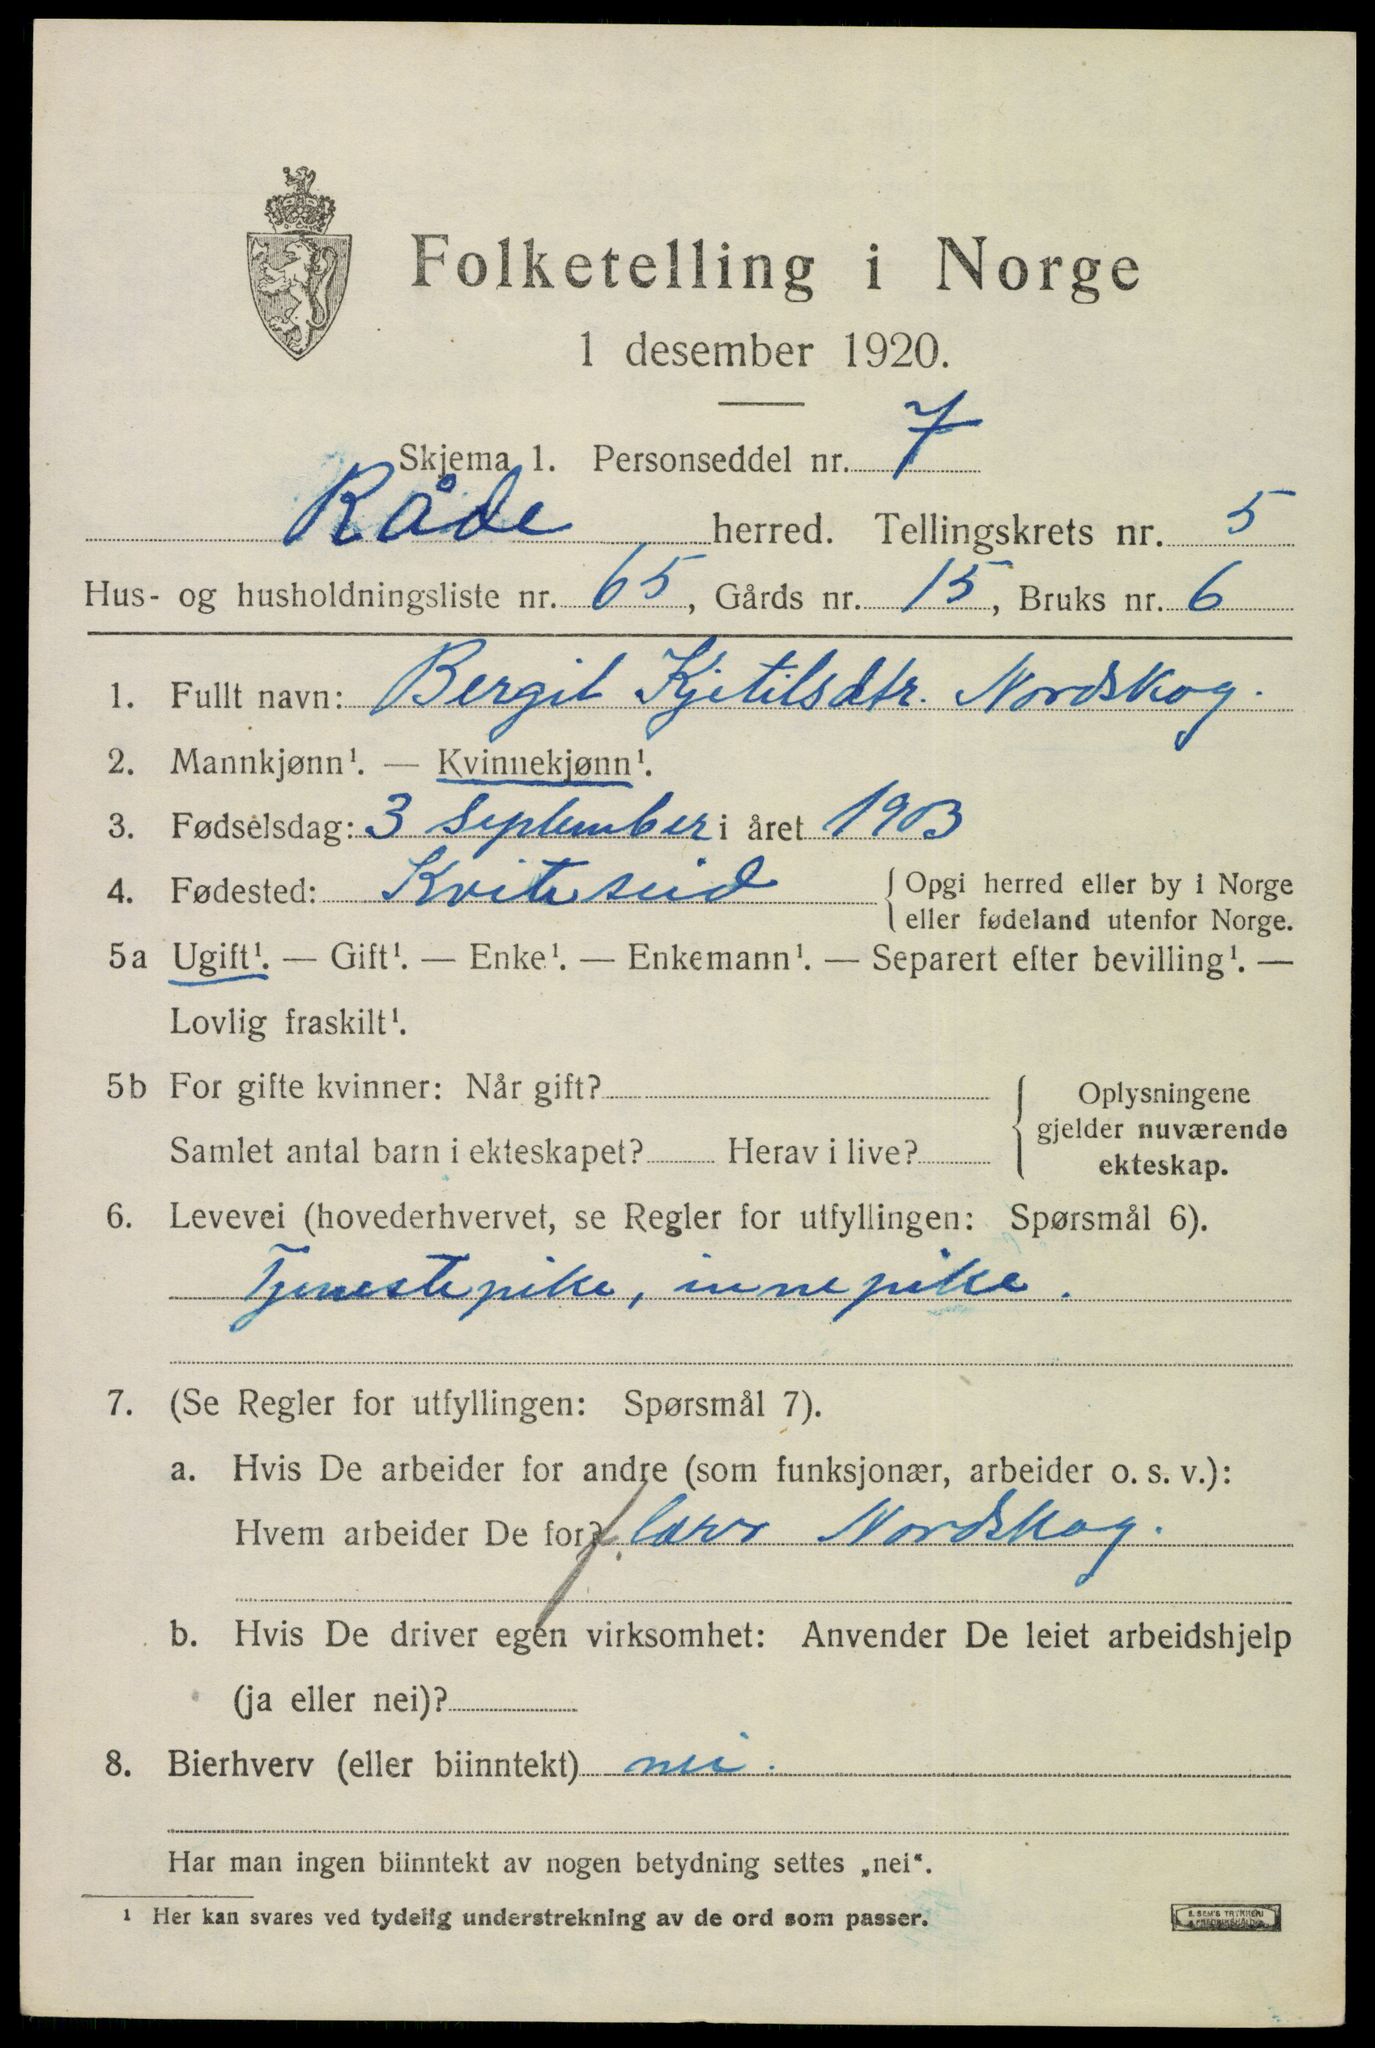 Folketelling i Norge
1 desember 1920.
Skjema 1. Personseddel nr. 7
Råde herred. Tellingskrets nr. 5
Hus- og husholdningsliste nr. 65, Gårds nr. 15, Bruks nr. 6
1. Fullt navn: Bergit Kjetilsdtr. Nordskog.
2. Mannkjønn¹. — Kvinnekjønn¹.
3. Fødselsdag: 3 September i året 1903
4. Fødested: Kviteseid { Opgi herred eller by i Norge
eller fødeland utenfor Norge.
5a Ugift¹. — Gift¹. — Enke¹. — Enkemann¹. — Separert efter bevilling¹. —
Lovlig fraskilt¹.
5b For gifte kvinner: Når gift? { Oplysningene
gjelder nuværende
Samlet antal barn i ekteskapet? Herav i live?
ekteskap.
6. Levevei (hovederhvervet, se Regler for utfyllingen: Spørsmål 6).
Tjenestepike, innepike.
7. (Se Regler for utfyllingen: Spørsmål 7).
a. Hvis De arbeider for andre (som funksjonær, arbeider o. s. v.):
Hvem arbeider De for? Nordskog.
b. Hvis De driver egen virksomhet: Anvender De leiet arbeidshjelp
(ja eller nei)?
8. Bierhverv (eller biinntekt) nei.
Har man ingen biinntekt av nogen betydning settes „nei“.
¹ Her kan svares ved tydelig understrekning av de ord som passer.
E. SEM'S TRYKKERI
FREDRIKSHALD